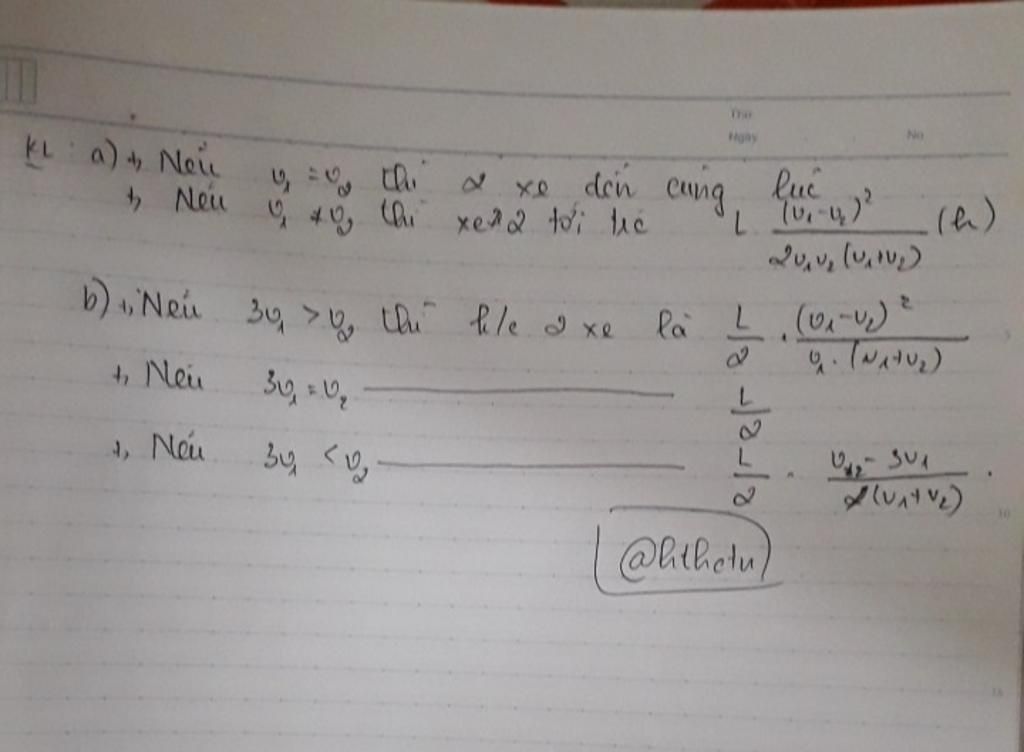 Thứ
Ngày No
KL : a) +, Nếu v₁ = v₂ thì 2 xe đến cùng lúc
+, Nếu v₁ ≠ v₂ thì xe 2 tới L (v₁-v₂)²/2v₁v₂(v₁+v₂) (h)
b) +, Nếu 3v₁ > v₂ thì k/c 2 xe là L/2 . (v₁-v₂)²/v₁.(v₁+v₂)
+, Nếu 3v₁ = v₂ ——— L/2
+, Nếu 3v₁ < v₂ ——— L/2 . v₂ - 3v₁/(v₁+v₂) .
@hthctu
10